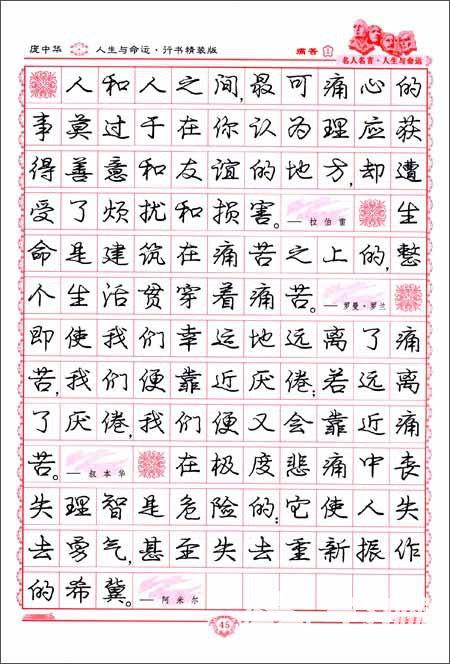 庞中华 人生与命运·行书精装版 痛苦
名人名言·人生与命运
人和人之间,最可痛心的
事莫过于在你认为理应获
得善意和友谊的地方,却遭
受了烦扰和损害。—拉伯雷 生
命是建筑在痛苦之上的,整
个生活贯穿着痛苦。—罗曼·罗兰
即使我们幸运地远离了痛
苦,我们便靠近厌倦;若远离
了厌倦,我们便又会靠近痛
苦。—叔本华 在极度悲痛中丧
失理智是危险的;它使人失
去勇气,甚至失去重新振作
的希冀。—阿米尔
45